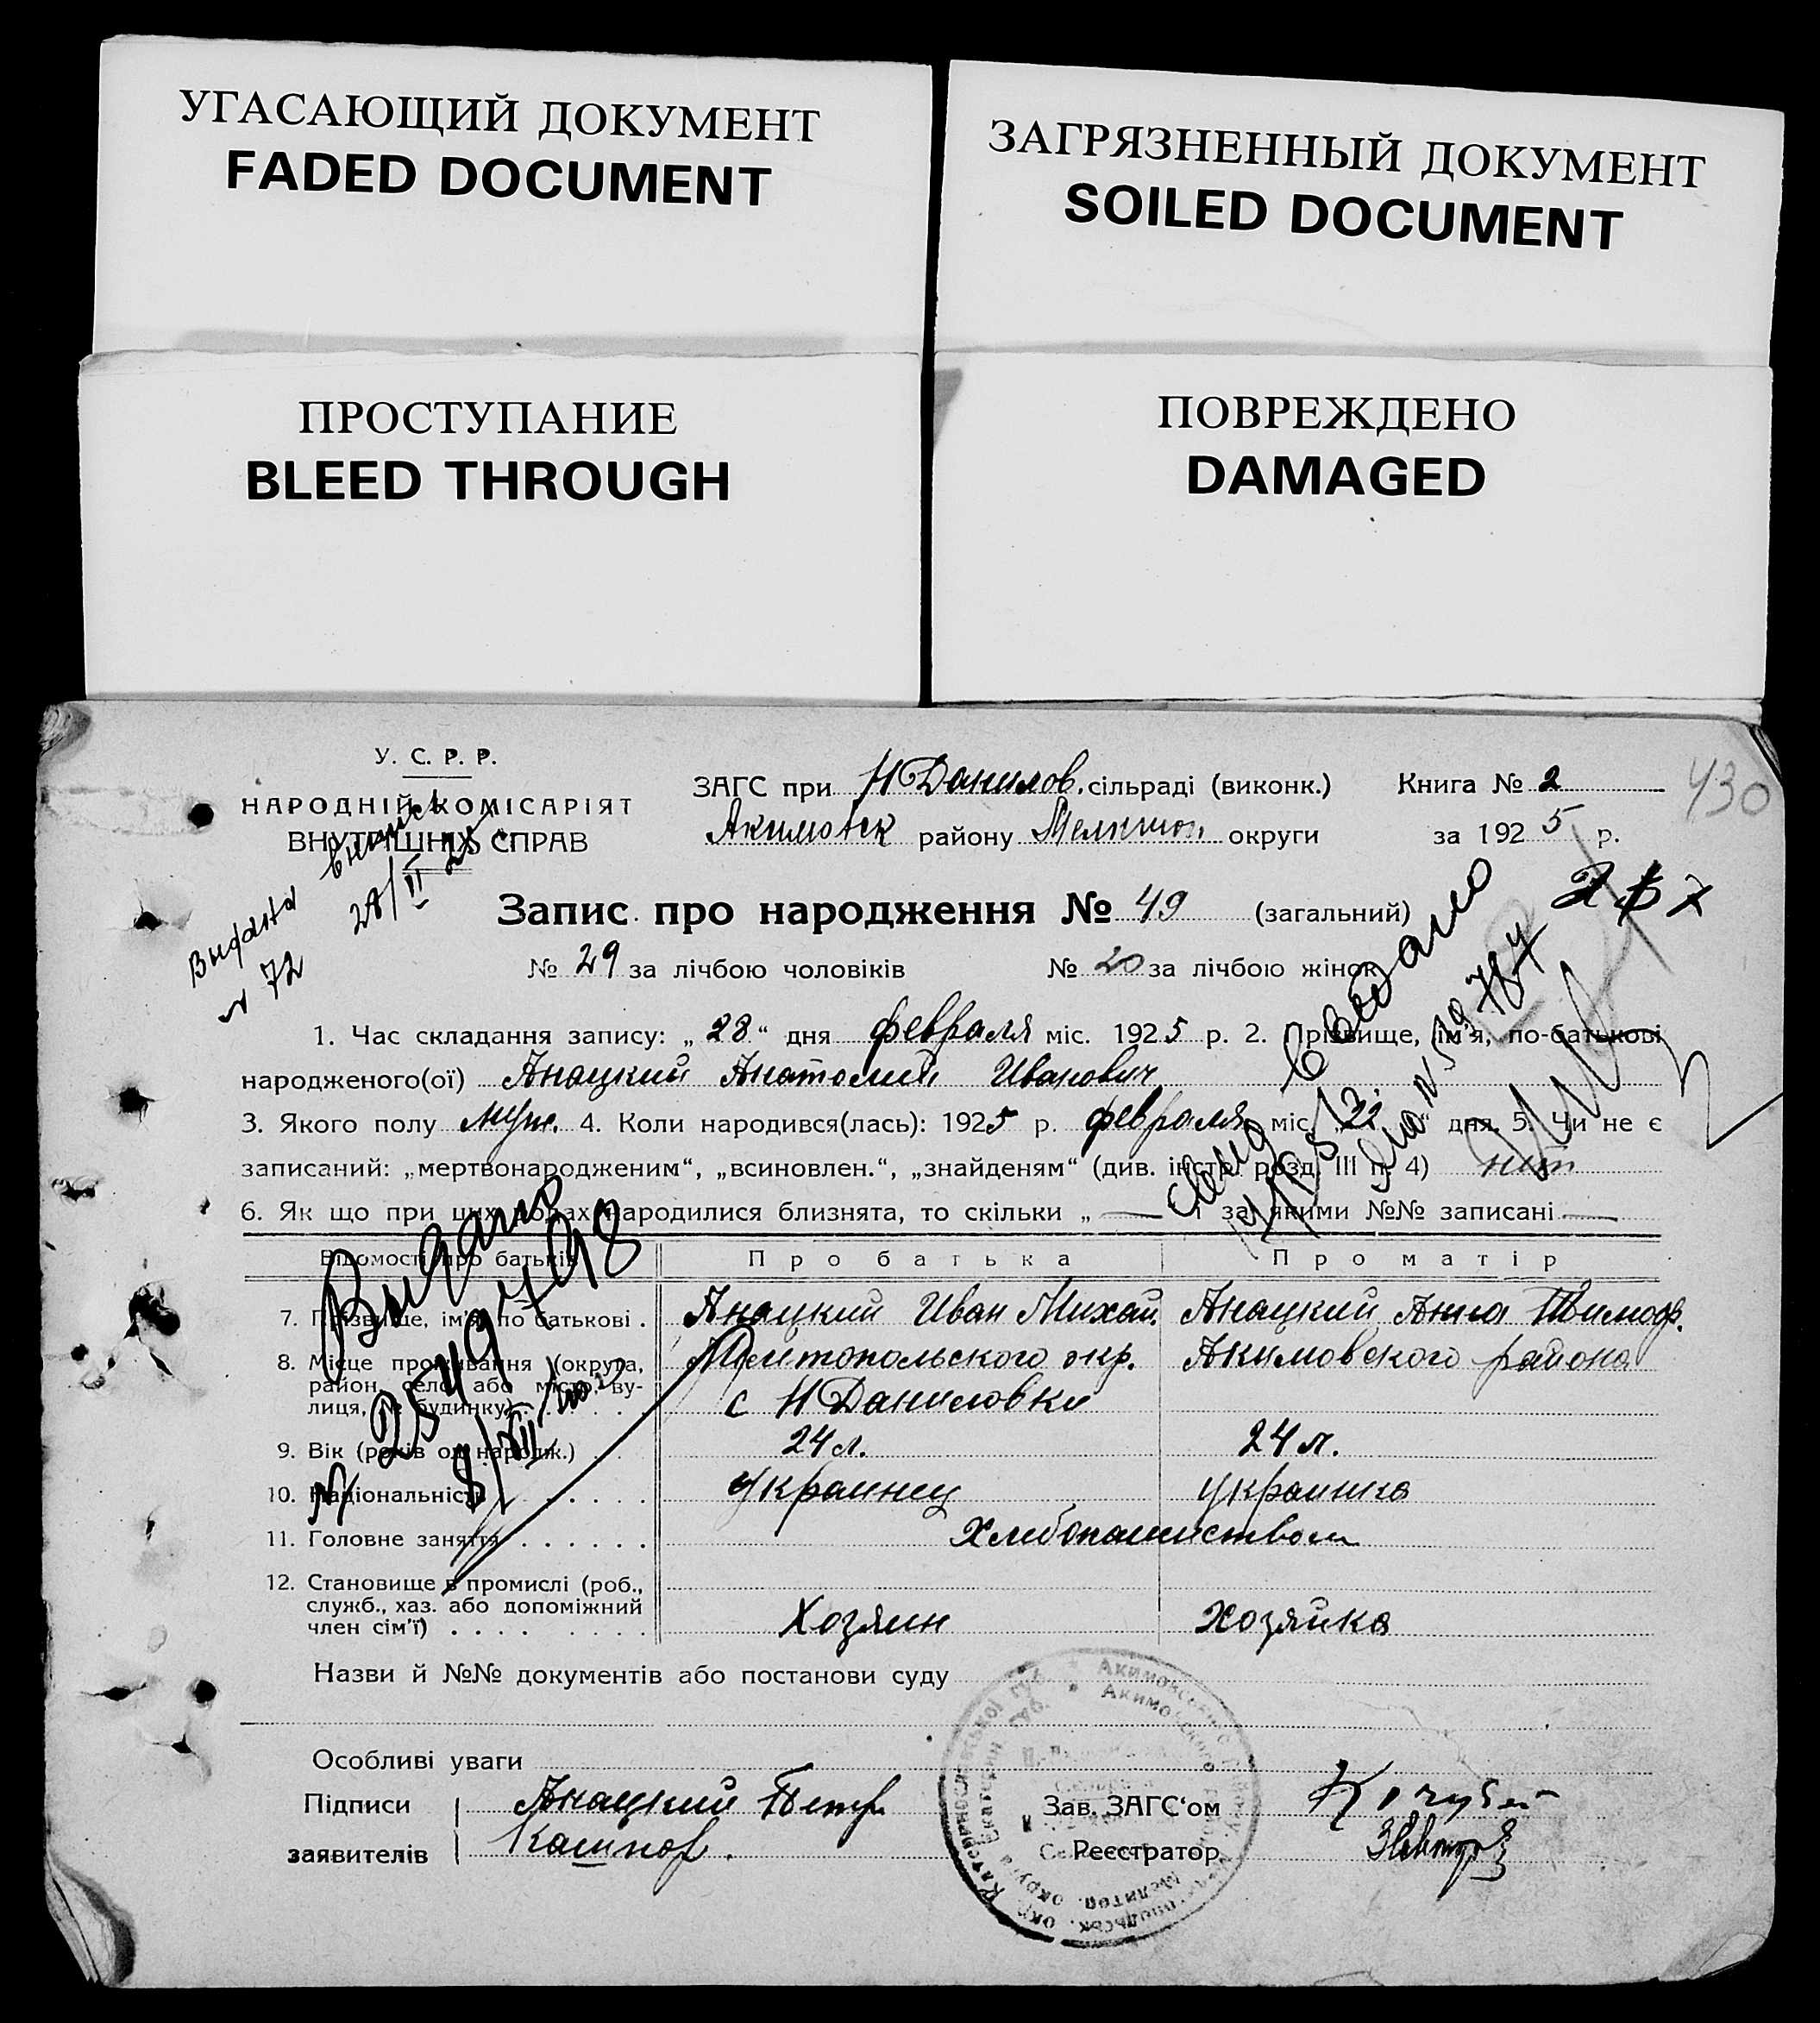 УГАСАЮЩИЙ ДОКУМЕНТ
FADED DOCUMENT
ЗАГРЯЗНЕННЫЙ ДОКУМЕНТ
SOILED DOCUMENT
ПРОСТУПАНИЕ
BLEED THROUGH
ПОВРЕЖДЕНО
DAMAGED
У. С. Р. Р.
НАРОДНІЙ КОМІСАРІЯТ
ВНУТРІШНІХ СПРАВ
ЗАГС при Н Данилов. сільраді (виконк.) Книга № 2
430
Акимовск району округи за 1925 р.
Запис про народження № 49 (загальний)
№ 29 за лічбою чоловіків № 20 за лічбою жінок
№ 72 28/II
1. Час складання запису: „28“ дня февраля міс. 1925 р. 2. Прізвище, ім'я, по-батькові
народженого(ої) Анацкий Анатолий Иванович
3. Якого полу муж. 4. Коли народився(лась): 1925 р. февраля міс. „22“ дня. 5. Чи не є
записаний: „мертвонародженим“, „всиновлен.“, „знайденям“ (див. інстр. розд. III п. 4) нет
6. Як що при цих родах народилися близнята, то скільки „ — і за якими №№ записані —
Видано
Відомості про батьків Про батька Про матір
7. Прізвище, ім'я, по батькові . Анацкий Иван Михай. Анацкий Анна Тимоф.
8. Місце проживання (округа, Мелитопольского окр. Акимовского района
район, село або місто, ву-
лиця, № будинку) с Н Даниловки
9. Вік (років од народж.) 24 л. 24 л.
10. Національність Украинец Украинка
11. Головне заняття Хлебопашиством
12. Становище в промислі (роб.,
служб., хаз. або допоміжний
член сім'ї) Хозяин хозяйка
Назви й №№ документів або постанови суду
Особливі уваги
Підписи Анацкий Петр Зав. ЗАГС'ом Кочубей
заявителів Кашпор. Реєстратор